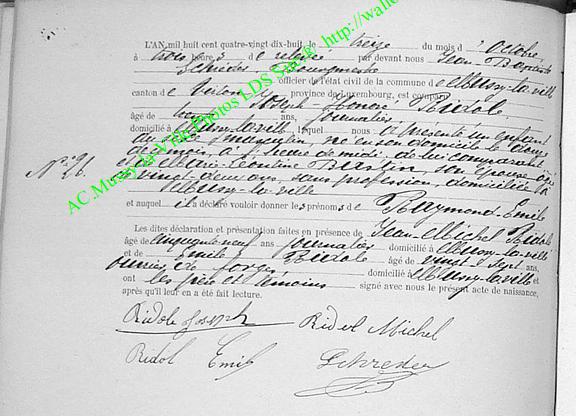 L'AN mil huit cent quatre-vingt dix-huit, le treize du mois d'Octobre,
à trois heures de relevée par devant nous Jean Baptiste
Schreder Bourgmestre officier de l'état civil de la commune de Mussy-la-ville
canton de Virton province de Luxembourg, est comparu
Joseph-Honoré Ridole
âgé de ans, journalier,
domicilié à Mussy-la-ville, lequel nous a présenté un enfant
du sexe masculin, né en son domicile le douze
du mois, à heure de midi, de lui comparant
et de Marie-Léontine Bastin, son épouse âgée
de vingt-deux ans, sans profession, domiciliée à
Mussy-la-ville
et auquel il a déclaré vouloir donner les prénoms de Raymond-Emile
N° 26.
Les dites déclaration et présentation faites en présence de Jean-Michel Ridole
âgé de cinquante neuf ans journalier domicilié à Mussy-la-ville
et de Emile Ridole âgé de vingt sept ans,
ouvrier de forges, domicilié à Mussy-la-ville et
ont les père et témoins signé avec nous le présent acte de naissance,
après qu'il leur en a été fait lecture.
Ridole Joseph Ridol Michel
Ridol Emil Schreder
AC.Mussy-la-Ville Photos LDS Salt http://wallo